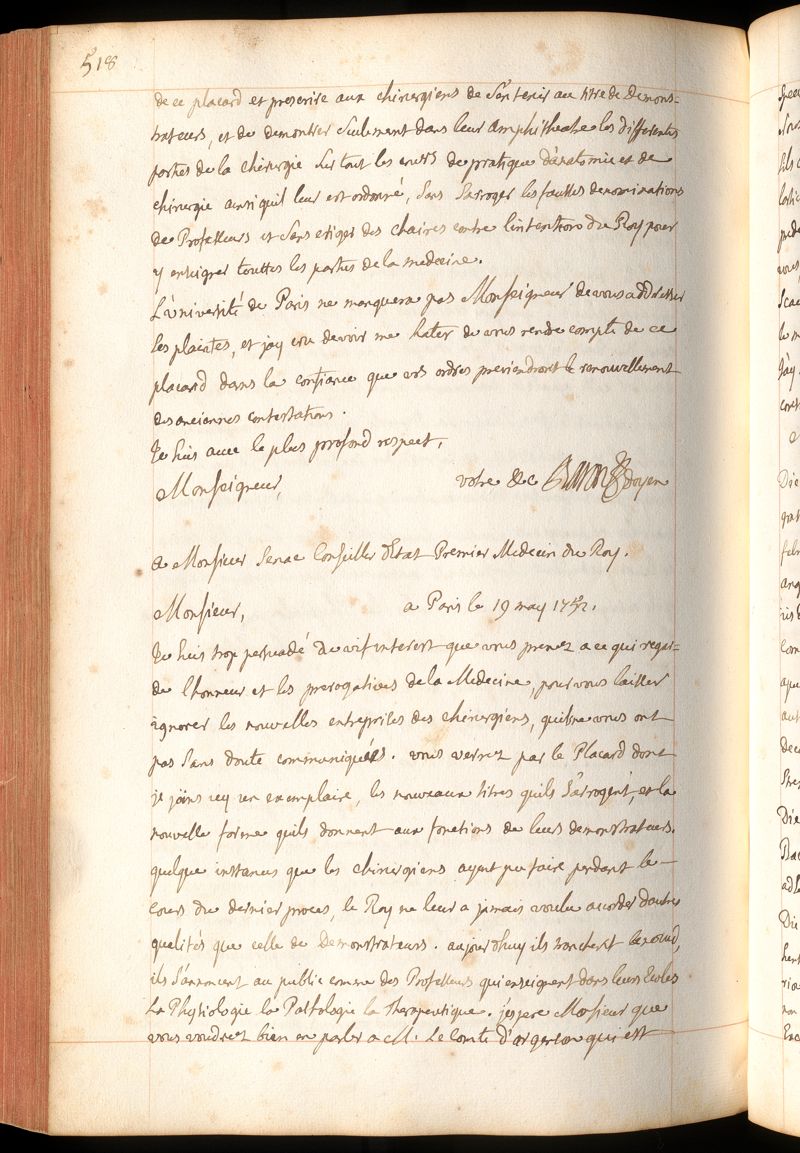 518
de ce placard et prescrire aux chirurgiens de s'en tenir au titre de Demons-
trateurs, et de demontrer seulement dans leur amphitheatre les differentes
parties de la chirurgie sur tout les cours de pratique d'anatomie et de
chirurgie ainsi quil leur est ordonné, sans s'arroger les fausses denominations
de Professeurs et sans eriger des chaires contre lintention du Roy pour
y enseigner touttes les parties de la medecine.
L'université de Paris ne manquera pas Monseigneur de vous addresser
ses plaintes, et jay cru devoir me hater de vous rendre compte de ce
placard dans la confiance que vos ordres previendront le renouvellement
des anciennes contestations.
Je suis avec le plus profond respect,
Monseigneur,
votre &c doyen
a Monsieur Senac Conseiller d'Etat Premier Medecin du Roy.
Monsieur, a Paris le 19 may 1752.
Je suis trop persuadé du vif interest que vous prenez a ce qui regar-
de lhonneur et les prerogatives de la Medecine, pour vous laisser
ignorer les nouvelles entreprises des chirurgiens, quils ne vous ont
pas sans doute communiquées. vous verrez par le Placard dont
je joins icy un exemplaire, les nouveaux titres quils s'arrogent, et la
nouvelle forme quils donnent aux fonctions de leurs demonstrateurs.
quelque instances que les chirurgiens ayent pu faire pendant le
cours du dernier proces, le Roy ne leur a jamais voulu accorder dautres
qualités que celle de Demonstrateurs. aujourdhuy ils tranchent le noeud,
ils s'annoncent au public comme des Professeurs qui enseignent dans leurs Ecoles
La Physiologie la Pathologie la Therapeutique. jespere Monsieur que
vous voudrez bien en parler a M. Le Comte D'argenson qui est